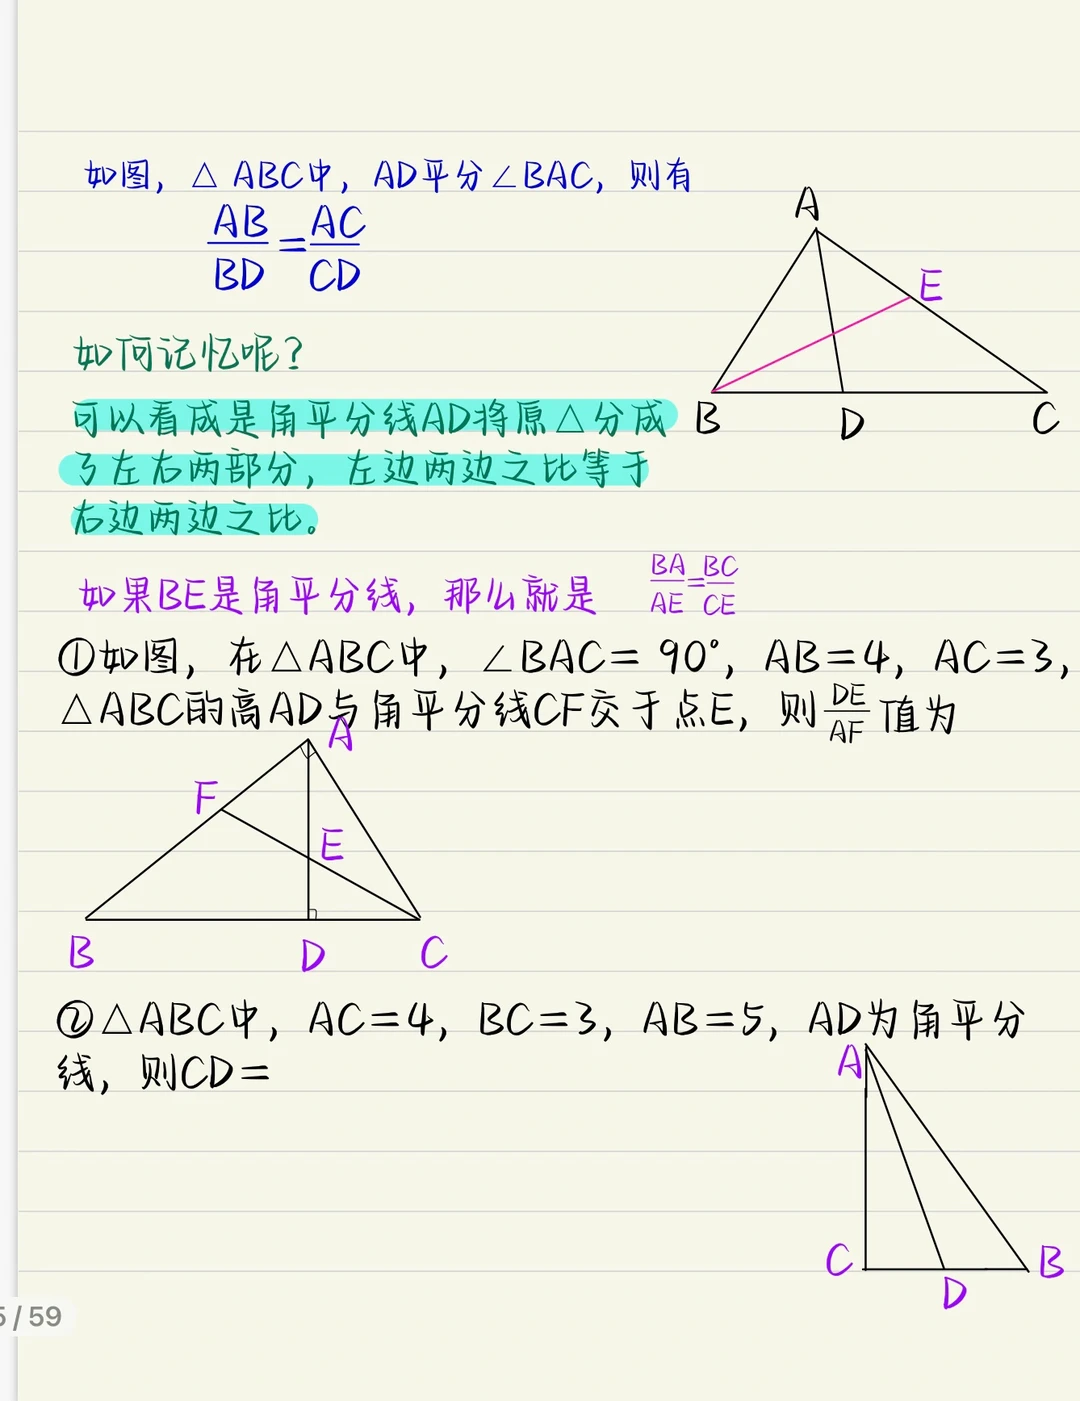 如图，△ ABC中，AD平分∠BAC，则有
AB/BD=AC/CD
A
E
B
D
C
如何记忆呢？
可以看成是角平分线AD将原△分成
了左右两部分，左边两边之比等于
右边两边之比。
如果BE是角平分线，那么就是 BA/AE=BC/CE
①如图，在△ABC中，∠BAC= 90°，AB=4，AC=3，
△ABC的高AD与角平分线CF交于点E，则DE/AF值为
A
F
E
B
D
C
②△ABC中，AC=4，BC=3，AB=5，AD为角平分
线，则CD=
A
C
B
D
5/59